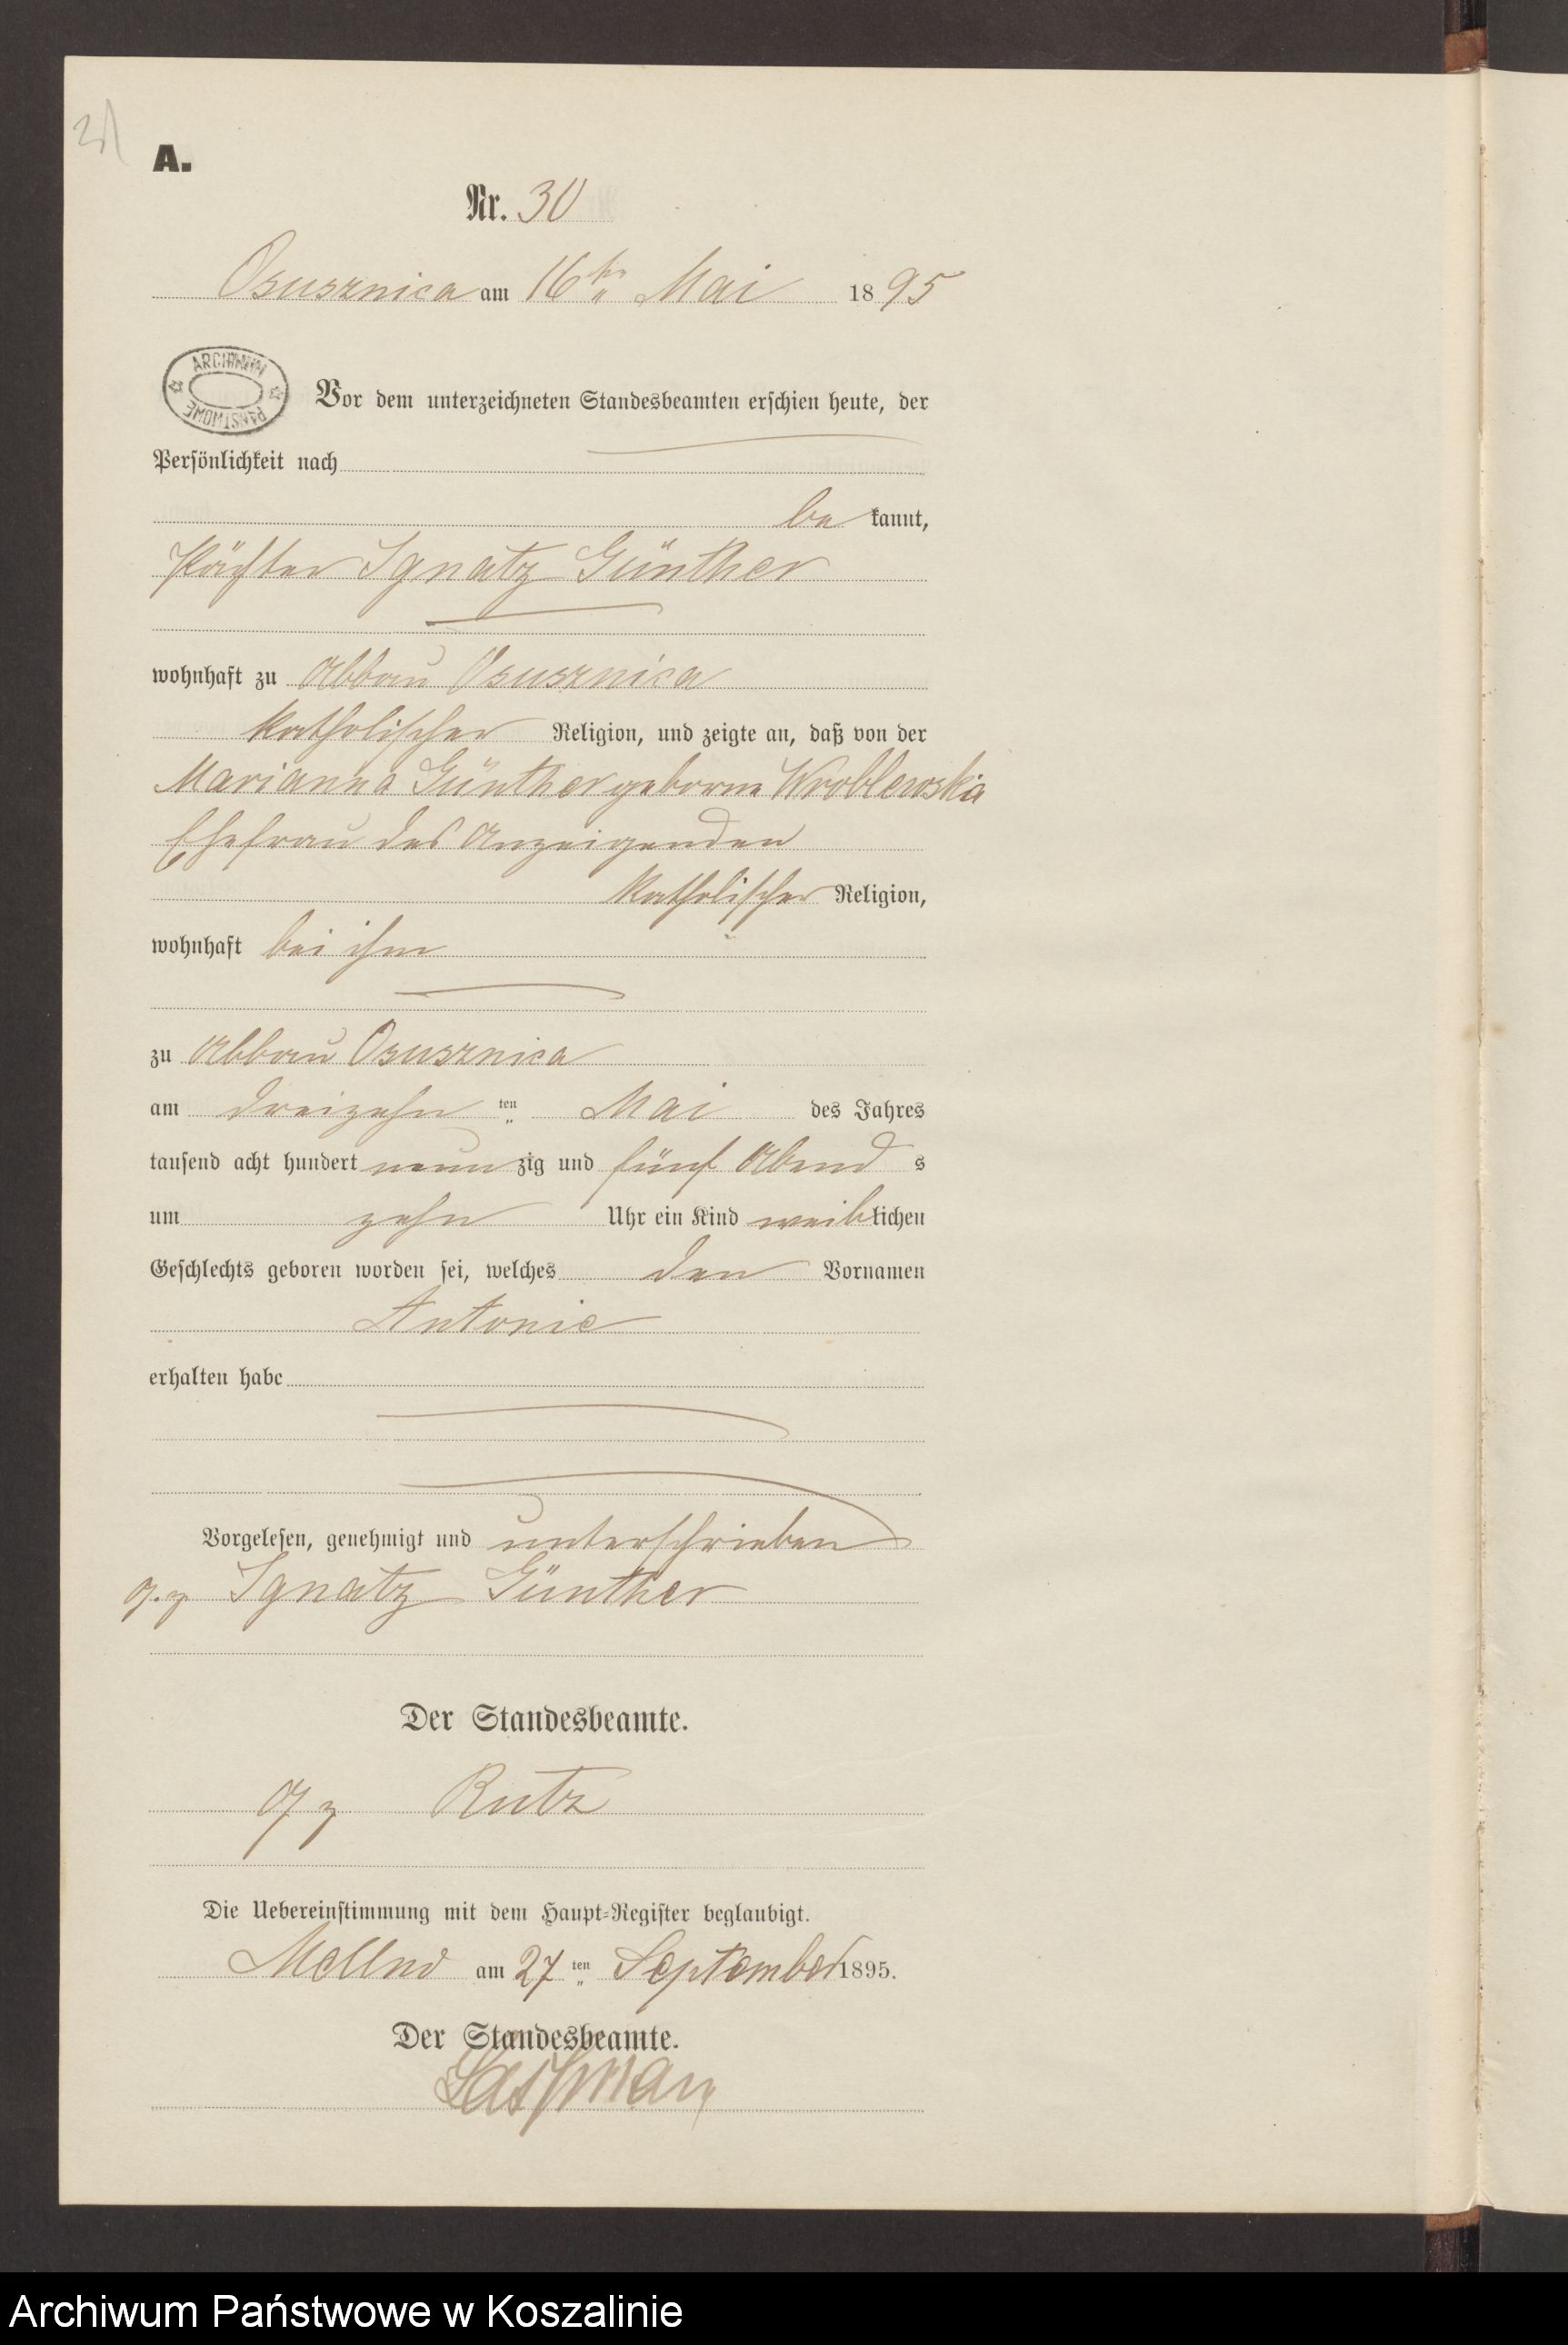 A.
Nr. 30
Osusznica am 16ten Mai 1895
ARCHIWUM PAŃSTWOWE
Vor dem unterzeichneten Standesbeamten erschien heute, der
Persönlichkeit nach
be kannt,
Pächter Ignatz Günther
wohnhaft zu Abbau Osusznica
katholischer Religion, und zeigte an, daß von der
Marianna Günther geborne Wroblewska
Ehefrau des Anzeigenden
katholischer Religion,
wohnhaft bei ihm
zu Abbau Osusznica
am dreizehn ten Mai des Jahres
tausend acht hundert neun zig und fünf Abend s
um zehn Uhr ein Kind weiblichen
Geschlechts geboren worden sei, welches den Vornamen
Antonie
erhalten habe
Vorgelesen, genehmigt und unterschrieben
gz Ignatz Günther
Der Standesbeamte.
gz Rutz
Die Uebereinstimmung mit dem Haupt-Register beglaubigt.
am 27 ten September 1895.
Der Standesbeamte.
Archiwum Państwowe w Koszalinie